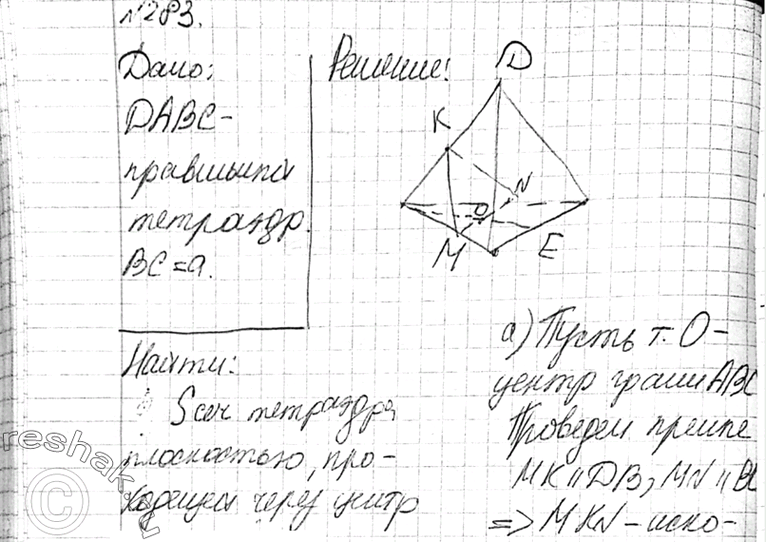 №283.
Дано:
DABC-
правильный
тетраэдр.
BC=a.
Найти:
Sсеч тетраэдра
плоскостью, про-
ходящей через центр
Решение:
D
K
N
O
M
E
а) Пусть т. O-
центр грани ABC
Проведем
MK || DB, MN || BC
=> MKN - иско-
reshak.ru
©